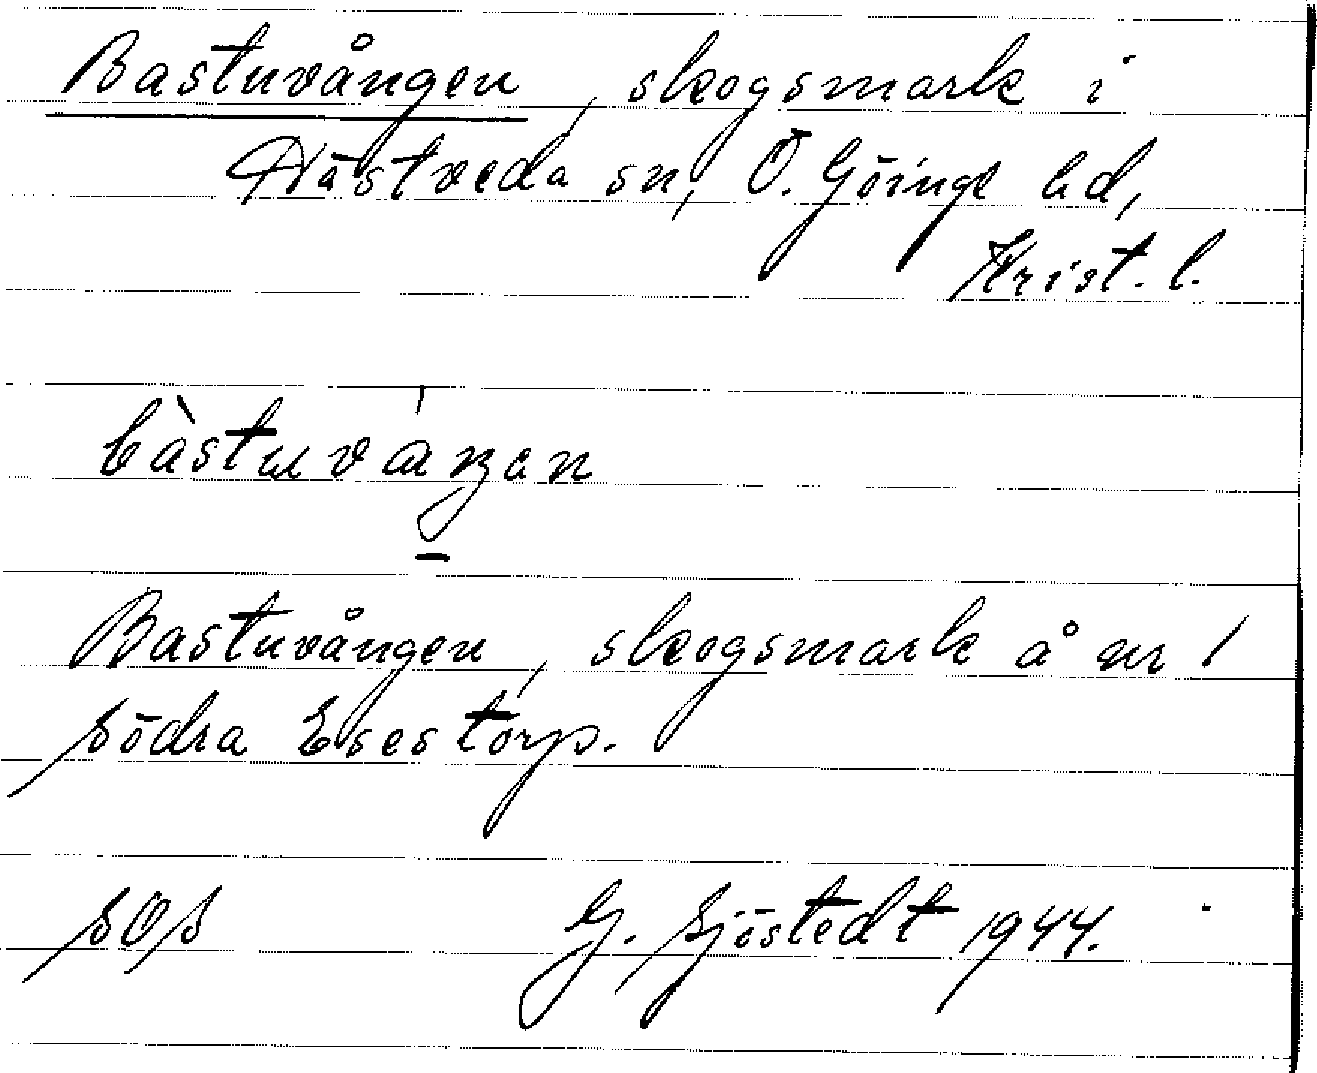 Bastuvången, skogsmark i
Hästveda sn, Ö. Göinge hd,
Krist. l.
bàstuvaŋan
Bastuvången, skogsmark å nr 1
Södra Esestorp.
SOS G. Sjöstedt 1944.